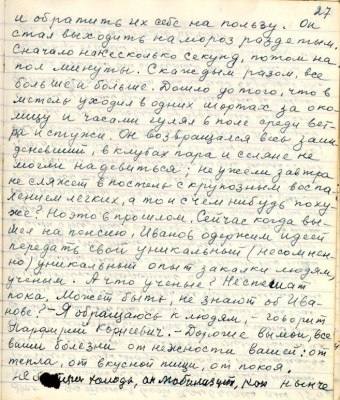 27
и обратить их себе на пользу. Он
стал выходить на мороз раздетым.
Сначало на несколько секунд, потом на
пол минуты. С каждым разом, все
больше и больше. Дошло до того, что в
метель уходил в одних шортах за око
лицу и часами гулял в поле среди вет-
ра и стужи. Он возвращался весь заин
девевший, в клубах пара и селяне не
могли надивиться; неужели завтра
не сляжет в постель с крупозным воспа-
лением легких, а то и с чем нибудь поху-
же? Но это в прошлом. Сейчас когда вы-
шел на пенсию, Иванов одержим идеей
передать свой уникальный (несомнен-
но) уникальный опыт закалки людям,
ученым. А что ученые? Не спешат
пока, может быть, не знают об Ива-
нове? - Я обращаюсь к людям, - говорит
Парфирий Корнеевич. - Дорогие вы мои, все
ваши болезни от нежности вашей: от
тепла, от вкусной пищи, от покоя.
холода, он мобилизует, нынче